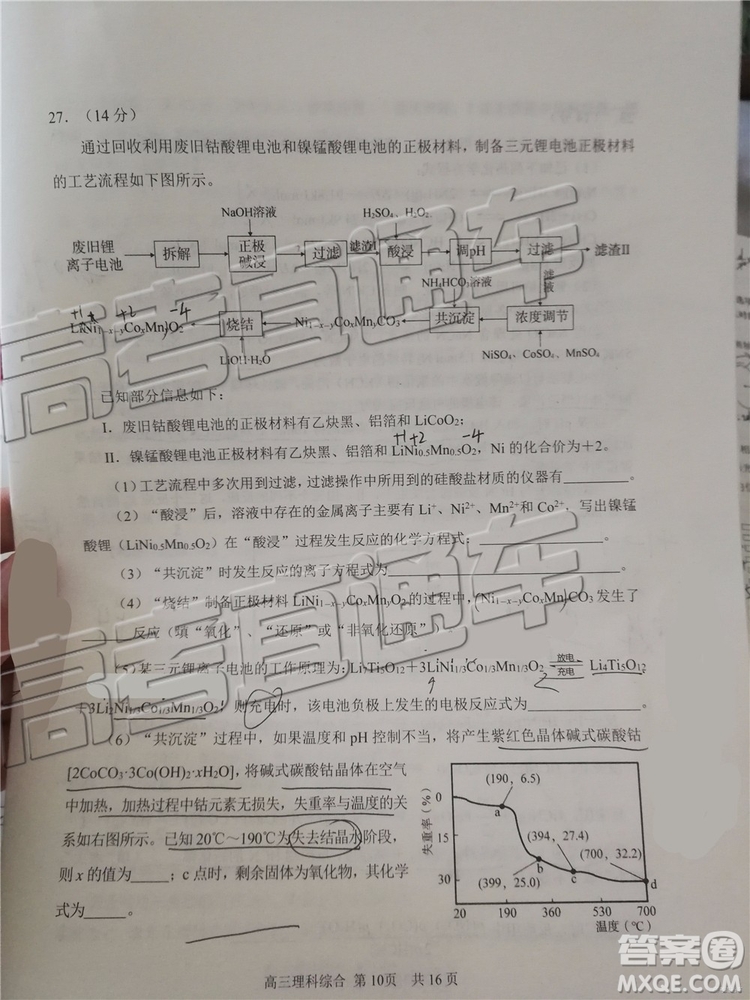 27.（14分）
通过回收利用废旧钴酸锂电池和镍锰酸锂电池的正极材料，制备三元锂电池正极材料
的工艺流程如下图所示。
NaOH溶液
H₂SO₄、H₂O₂
废旧锂
离子电池
拆解
正极
碱浸
过滤
滤渣I
酸浸
调pH
过滤
滤渣II
NH₄HCO₃溶液
滤
液
+1 +2 -4
LiNi₁₋ₓ₋yCoₓMnyO₂
烧结
Ni₁₋ₓ₋yCoₓMnyCO₃
共沉淀
浓度调节
LiOH·H₂O
NiSO₄、CoSO₄、MnSO₄
已知部分信息如下：
I．废旧钴酸锂电池的正极材料有乙炔黑、铝箔和LiCoO₂；
+1 +2 -4
II．镍锰酸锂电池正极材料有乙炔黑、铝箔和LiNi₀.₅Mn₀.₅O₂，Ni的化合价为＋2。
（1）工艺流程中多次用到过滤，过滤操作中所用到的硅酸盐材质的仪器有________。
（2）“酸浸”后，溶液中存在的金属离子主要有Li⁺、Ni²⁺、Mn²⁺和Co²⁺，写出镍锰
酸锂（LiNi₀.₅Mn₀.₅O₂）在“酸浸”过程发生反应的化学方程式：________。
（3）“共沉淀”时发生反应的离子方程式为________。
（4）“烧结”制备正极材料LiNi₁₋ₓ₋yCoₓMnyO₂的过程中，(Ni₁₋ₓ₋yCoₓMny)CO₃发生了
________反应（填“氧化”、“还原”或“非氧化还原”）。
（5）某三元锂离子电池的工作原理为：Li₇Ti₅O₁₂+3LiNi₁/₃Co₁/₃Mn₁/₃O₂ 放电 充电 Li₄Ti₅O₁₂
+3Li₂Ni₁/₃Co₁/₃Mn₁/₃O₂，则充电时，该电池负极上发生的电极反应式为________。
（6）“共沉淀”过程中，如果温度和pH控制不当，将产生紫红色晶体碱式碳酸钴
[2CoCO₃·3Co(OH)₂·xH₂O]，将碱式碳酸钴晶体在空气
中加热，加热过程中钴元素无损失，失重率与温度的关
系如右图所示。已知20℃～190℃为失去结晶水阶段，
则x的值为_____；c点时，剩余固体为氧化物，其化学
式为_____。
失重率（%）
0
15
30
(190，6.5)
a
(394，27.4)
(700，32.2)
(399，25.0)
b
c
d
20 190 360 530 700
温度（℃）
高三理科综合 第10页 共16页
高考直通车
高考直通车
答案圈
MXQE.COM